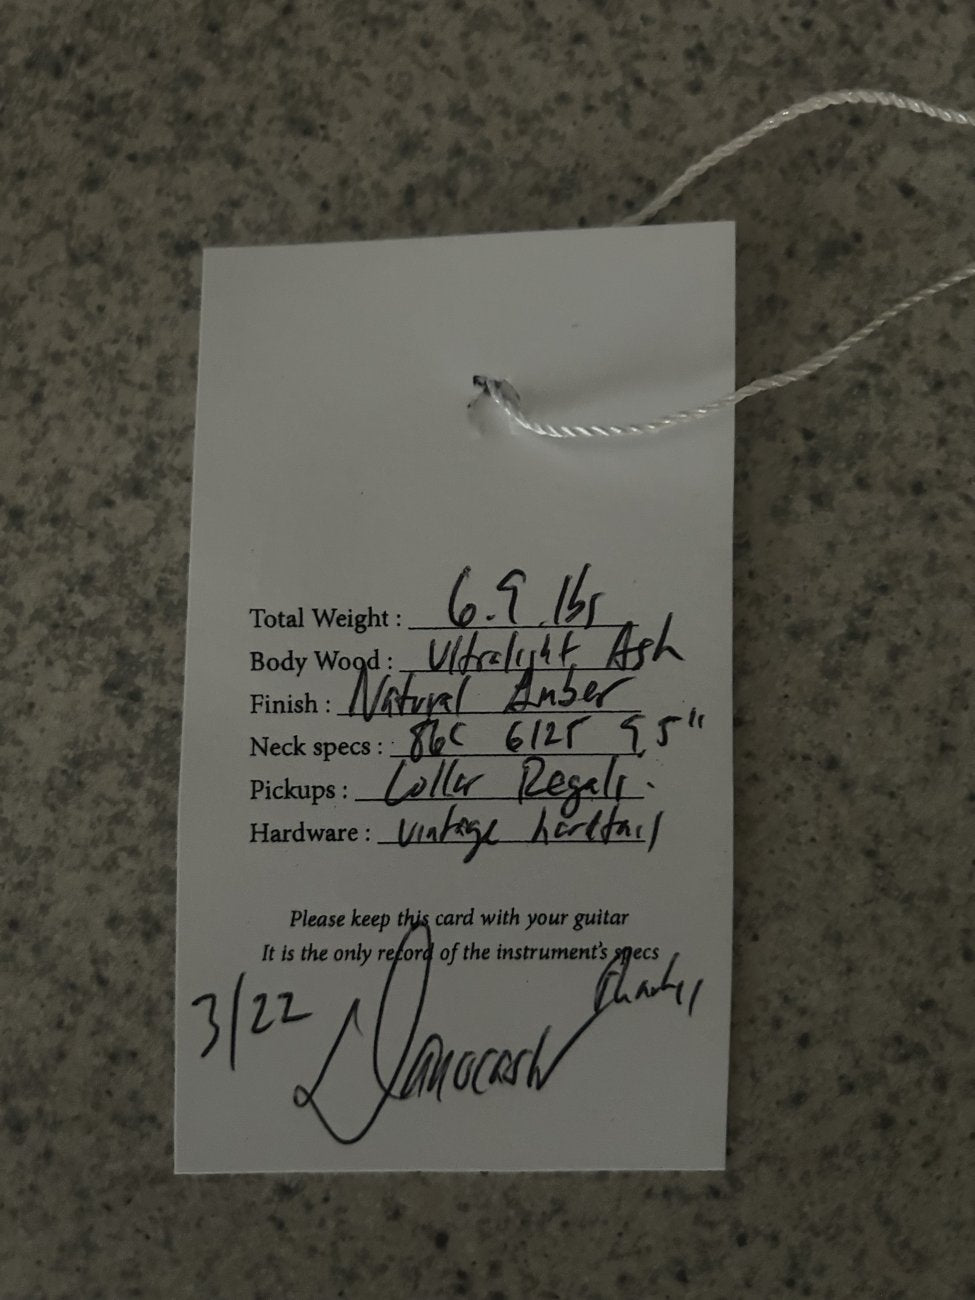 Total Weight : 6.9 lbs
Body Wood : Ultralight Ash
Finish : Natural Amber
Neck specs : 86C 6125 9.5"
Pickups : Lollar Regals.
Hardware : vintage hardtail
Please keep this card with your guitar
It is the only record of the instrument's specs
Thanks,
3/22 Danocaster